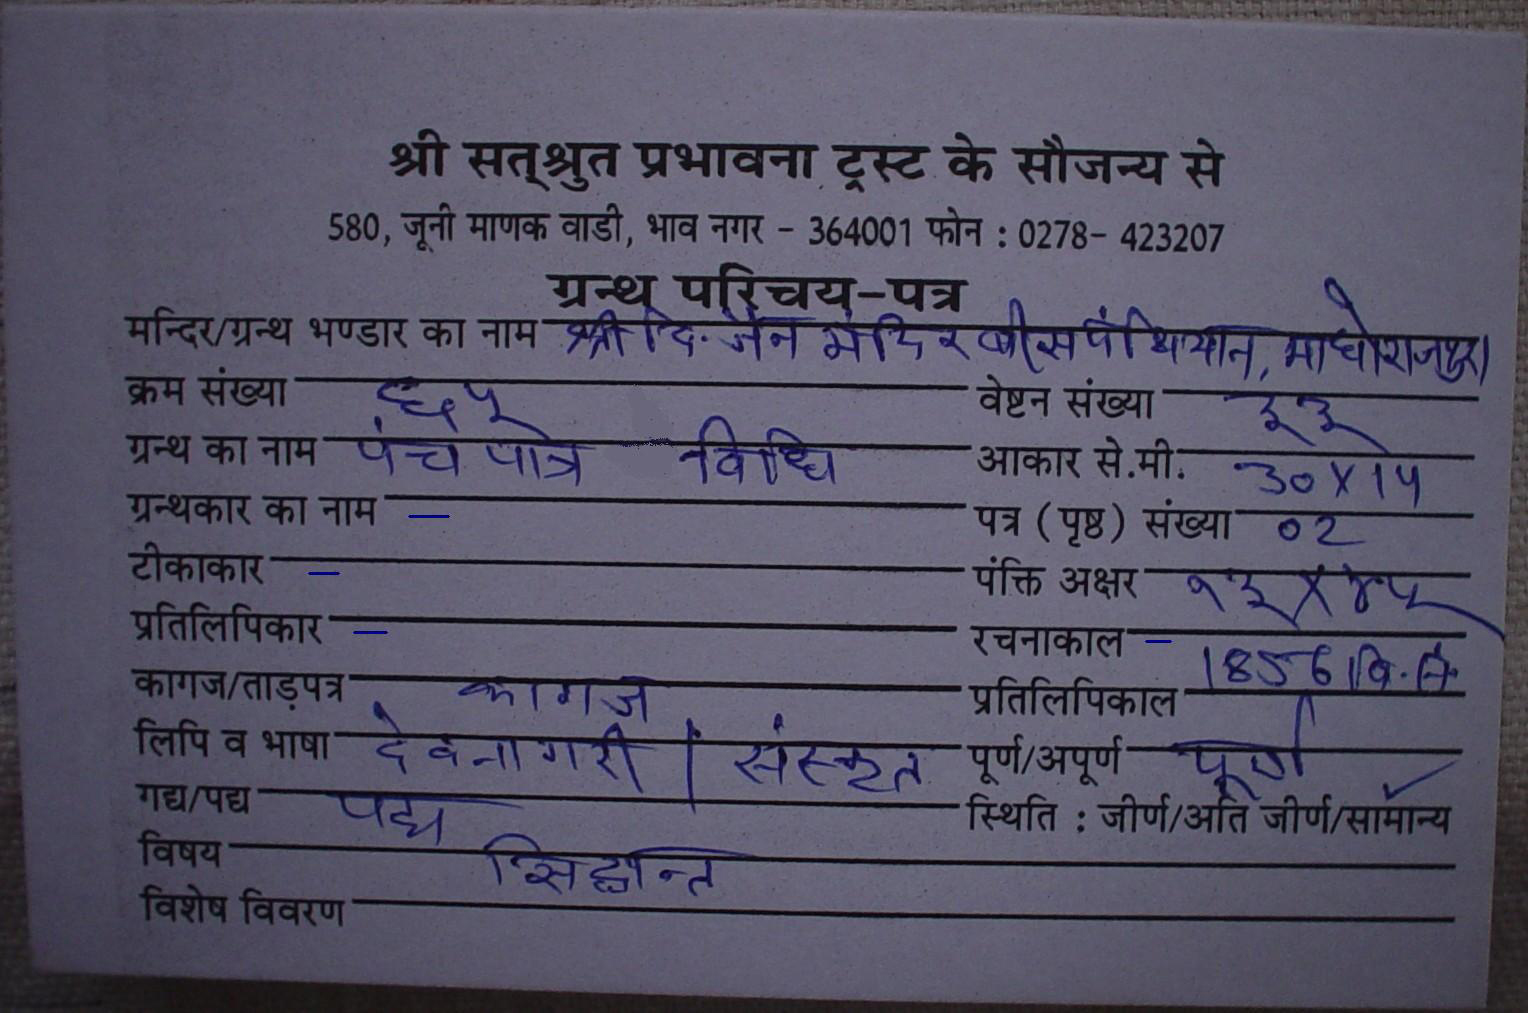 श्री सत्श्रुत प्रभावना ट्रस्ट के सौजन्य से
580, जूनी माणक वाडी, भाव नगर - 364001 फोन : 0278- 423207
ग्रन्थ परिचय-पत्र
मन्दिर/ग्रन्थ भण्डार का नाम श्री दि. जैन मंदिर बीसपंथियान, माधोराजपुरा
क्रम संख्या ६५ वेष्टन संख्या ३३
ग्रन्थ का नाम पंच पात्र विधि आकार से.मी. 30X14
ग्रन्थकार का नाम — पत्र (पृष्ठ) संख्या 02
टीकाकार — पंक्ति अक्षर १३X४५
प्रतिलिपिकार — रचनाकाल —
कागज/ताड़पत्र कागज प्रतिलिपिकाल 1856 वि.सं.
लिपि व भाषा देवनागरी | संस्कृत पूर्ण/अपूर्ण पूर्ण
गद्य/पद्य पद्य स्थिति : जीर्ण/अति जीर्ण/सामान्य ✓
विषय सिद्धान्त
विशेष विवरण